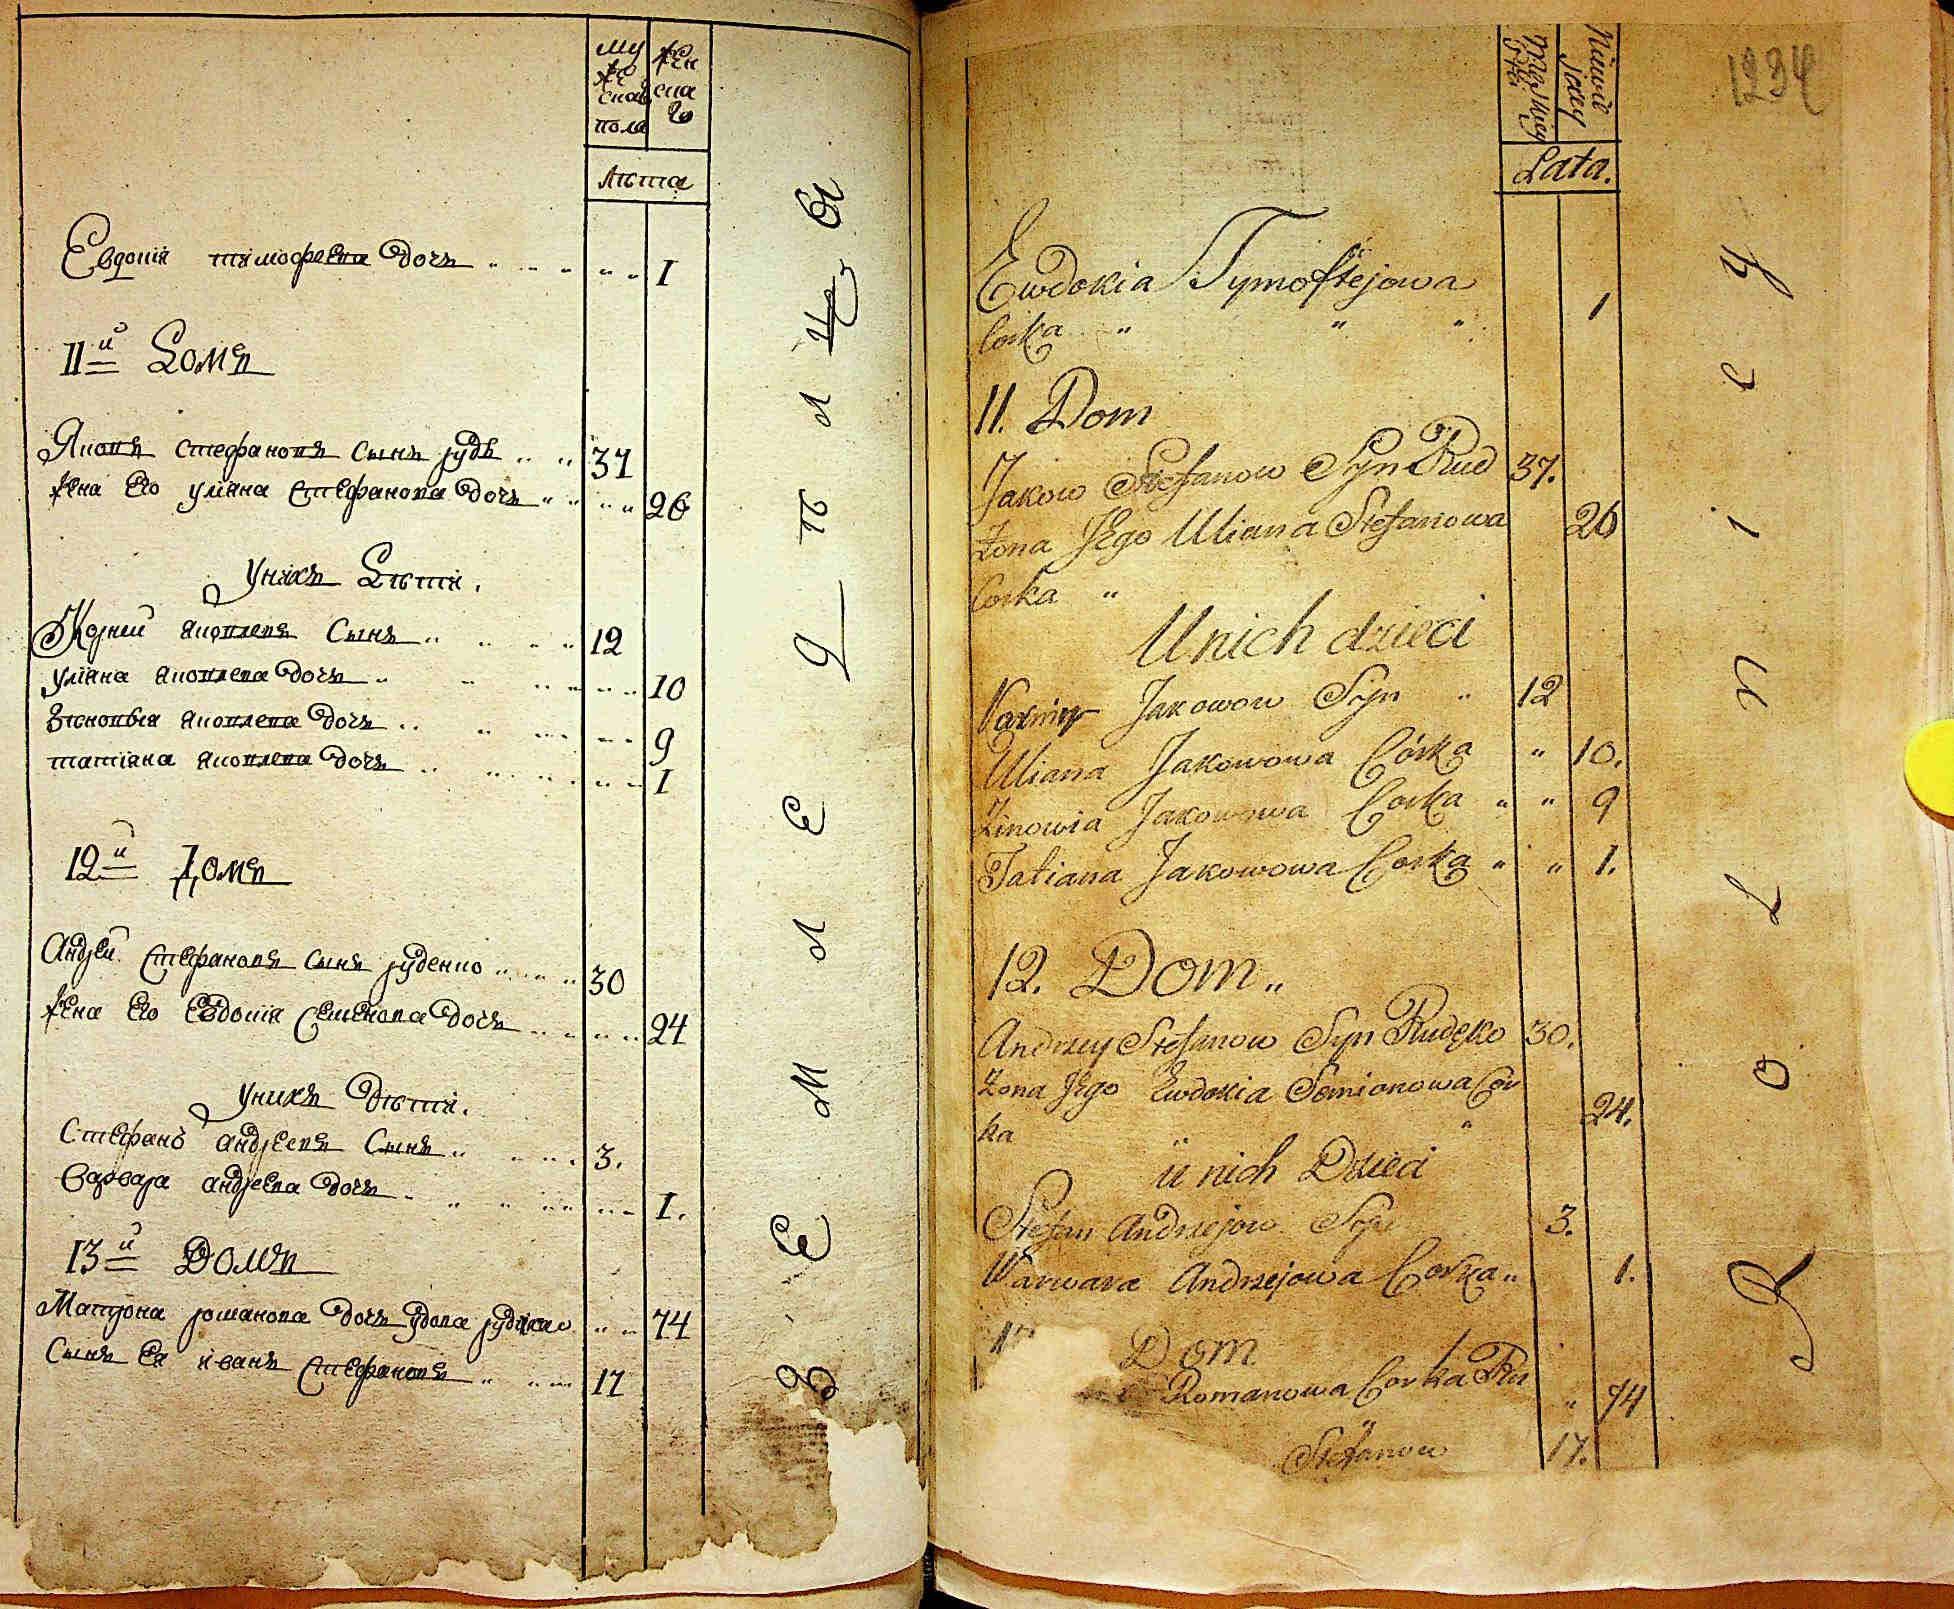 му
же
ска
пола
жен
ска
го
лѣта
Евдокія тимофеева дочь 1
11й Домъ
Яковъ стефановъ сынъ рудь 37
жена его уляна Стефанова дочь 26
Унихъ Дѣти.
Корней яковлевъ Сынъ 12
уляна яковлева дочь 10
Зѣновья яковлева дочь 9
татіяна яковлева дочь 1
12й Домъ
Андрей Стефановъ сынъ руденко 30
жена его Евдокія Семенова дочь 24
Унихъ Дѣти.
Стефанъ андреевъ Сынъ 3.
Варвара андреева дочь 1.
13й Домъ
Матрона романова дочь удова руденко 74
Сынъ ея иванъ Стефановъ 17
З Е М Л Е
1234
Lata.
Ewdokia Tymofiejowa 1
Corka " " "
11. Dom
Jakow Stefanow Syn Rud 37.
Zona Jego Uliana Stefanowa 26
Corka "
U nich dzieci
Jakowow Syn " 12
Uliana Jakowowa Córka " 10.
Zinowia Jakowowa Corka " " 9
Tatiana Jakowowa Corka " " 1.
12. Dom "
Andrzey Stefanow Syn Rudęko 30.
Zona Jego Ewdokia Semionowa Cor
ka " 24.
u nich Dzieci
Stefan Andrzejow Syn 3.
Warwara Andrzejowa Corka " 1.
Dom
Romanowa Corka Ru " 74
Stefanow 17.
R o l n i c y